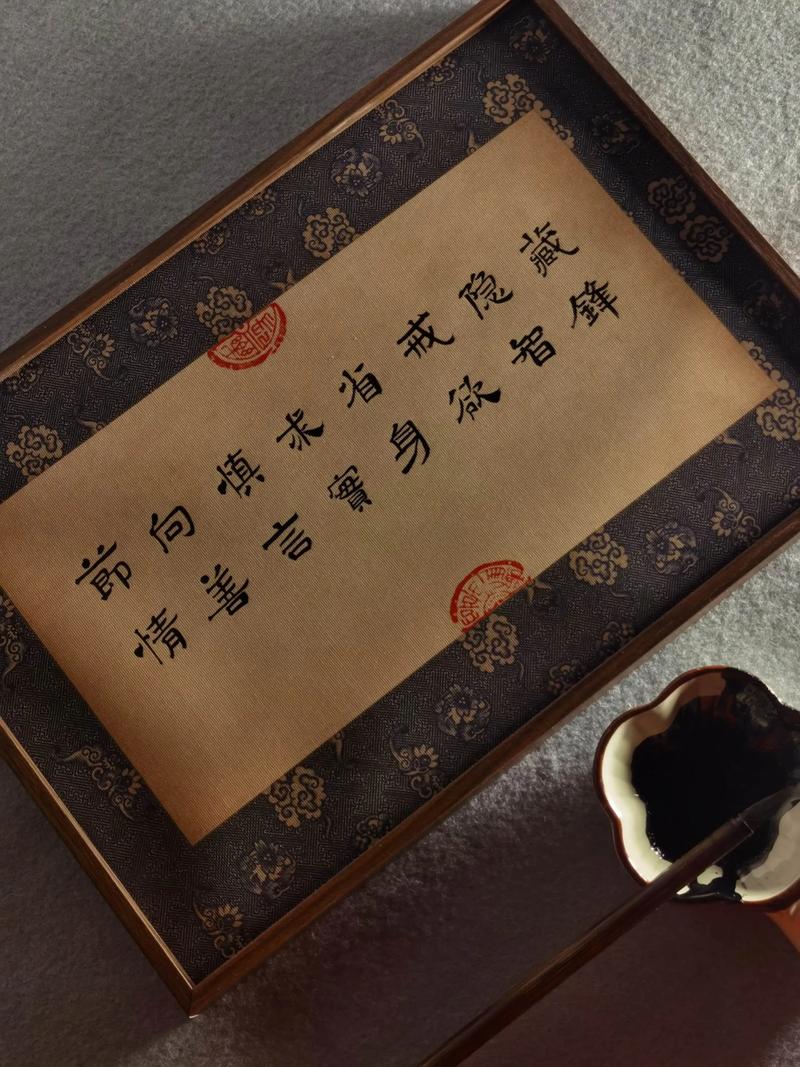 藏鋒
隐智
戒欲
省身
求實
慎言
向善
莭情